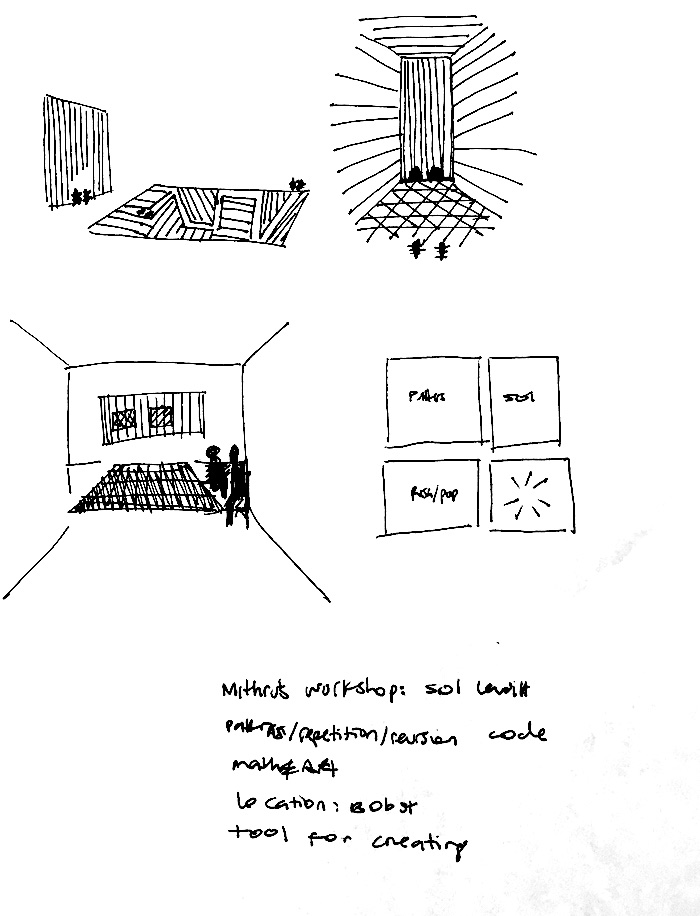 Patterns
sol
Push/pop
Mithru's workshop: sol lewitt
patterns/repetition/recursion code
math & Art
location: Bobst
tool for creating